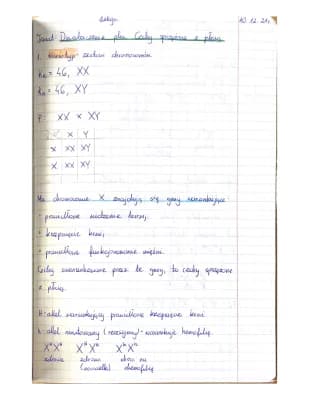 Lekcja 10.12.21r.
Temat: Dziedziczenie płci. Cechy sprzężone z płcią.
1. Kariotyp - zestaw chromosomów
= 46, XX
= 46, XY
P: XX × XY
X Y
X XX XY
X XX XY
Na chromosomie X znajdują się geny warunkujące:
- prawidłowe widzenie barw,
- krzepnięcie krwi,
- prawidłowe funkcjonowanie mięśni.
Cechy warunkowane przez te geny, to cechy sprzężone
z płcią.
H - allel warunkujący prawidłowe krzepnięcie krwi
h - allel (recesywny) - warunkuje hemofilię.
XᴴXᴴ XᴴXʰ XʰXʰ
zdrowa zdrowa chora na
(nosicielka) hemofilię